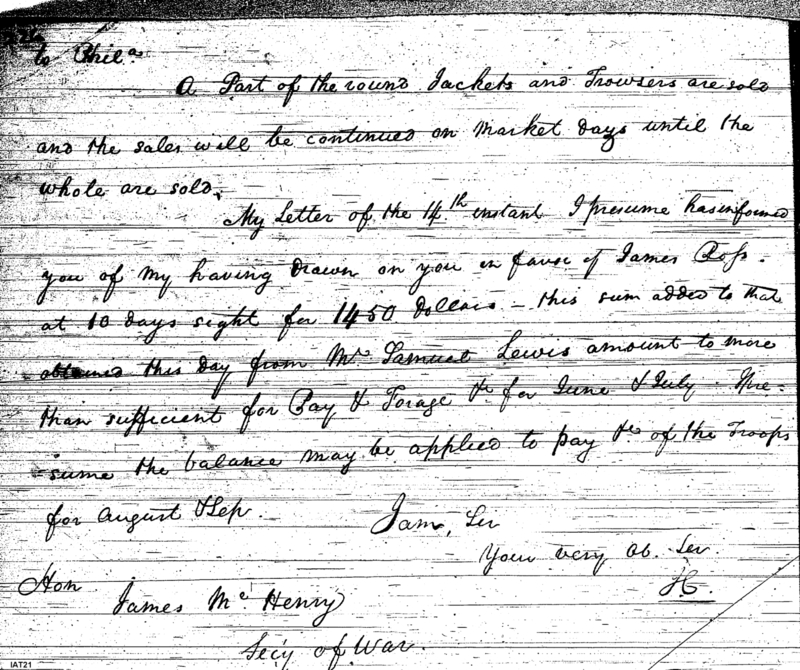 to Phila.
A Part of the round Jackets and Trowsers are sold
and the sales will be continued on Market days until the
whole are sold.
My Letter of the 14th instant I presume has informed
you of my having drawn on you in favor of James Ross.
at 10 days sight for 1450 Dollars – this sum added to that
obtained this day from Mr Samuel Lewis amount to more
than sufficient for Pay & Forage &c for June & July. Pre=
=sume the balance may be applied to pay &c of the Troops
for August & Sep.
I am, Sir
Your very Ob. Ser.
Hon
James McHenry
Secy of War.
IAT21